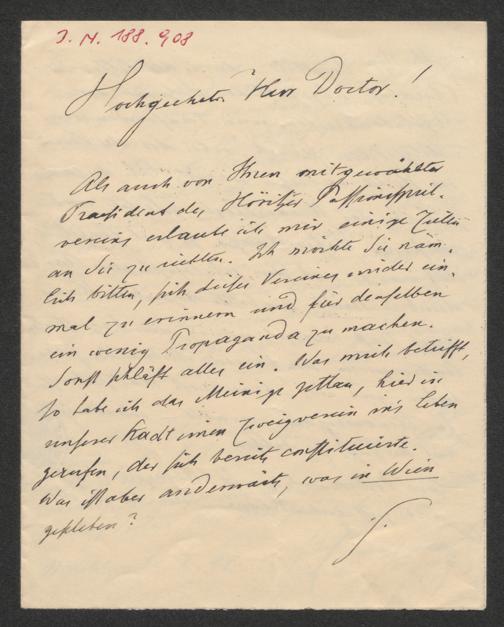 J. N. 188.908
Hochgeehrter Herr Doctor!
Als auch von Ihnen mitgewählter
Praesident des Höritzer Passionsspiel-
vereins erlaube ich mir einige Zeilen
an Sie zu richten. Ich möchte Sie näm-
lich bitten, sich dieses Vereines wieder ein-
mal zu erinnern und für denselben
ein wenig Propaganda zu machen.
Sonst schläft alles ein. Was mich betrifft,
so habe ich das Meinige gethan, hier in
unserer Stadt einen Zweigverein in's Leben
gerufen, der sich bereits constituierte.
Was ist aber anderwärts, was in Wien
geschehen?